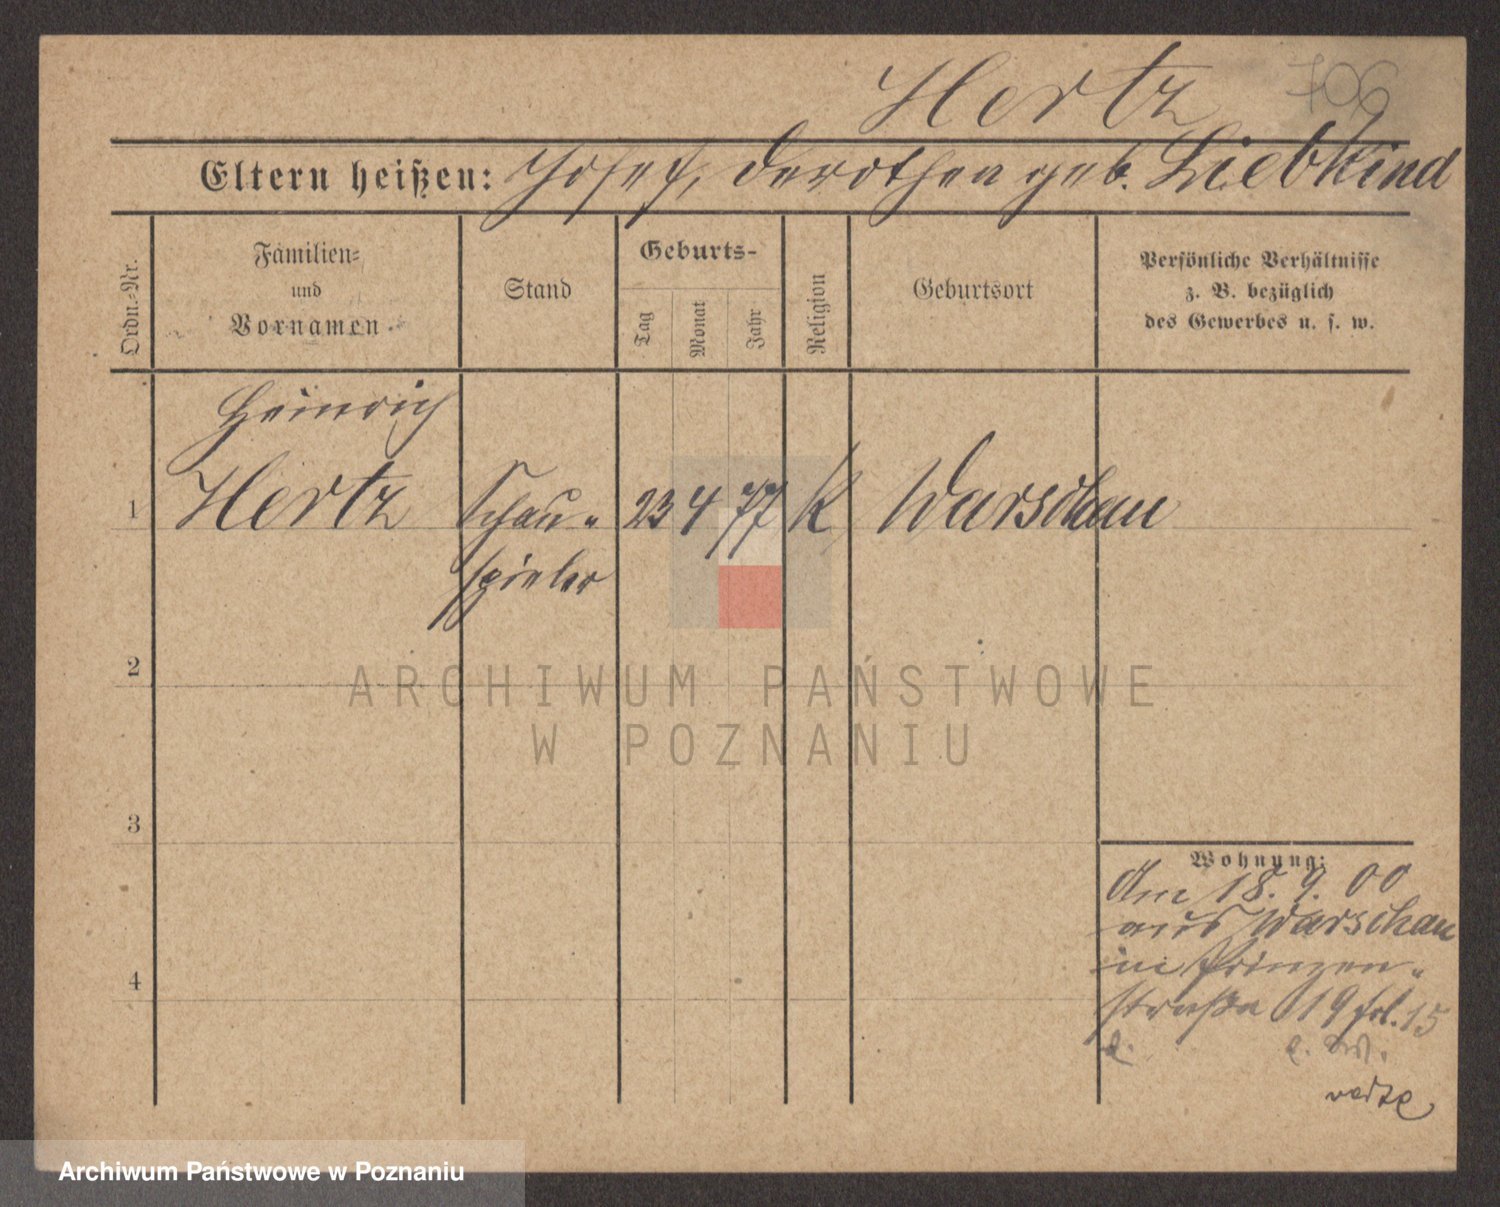 Hertz 706
Eltern heißen: Josef, Dorothea geb. Liebkind
Ordn.-Nr.
Familien-
und
Vornamen
Stand
Geburts-
Tag
Monat
Jahr
Religion
Geburtsort
Persönliche Verhältnisse
z. B. bezüglich
des Gewerbes u. s. w.
Heinrich
1 Hertz Schau- 23 4 77 K Warschau
spieler
2
ARCHIWUM PAŃSTWOWE
W POZNANIU
3
Wohnung:
Am 18. 9. 00
aus Warschau
in Prinzen-
straße 19 fol. 15
4
Archiwum Państwowe w Poznaniu